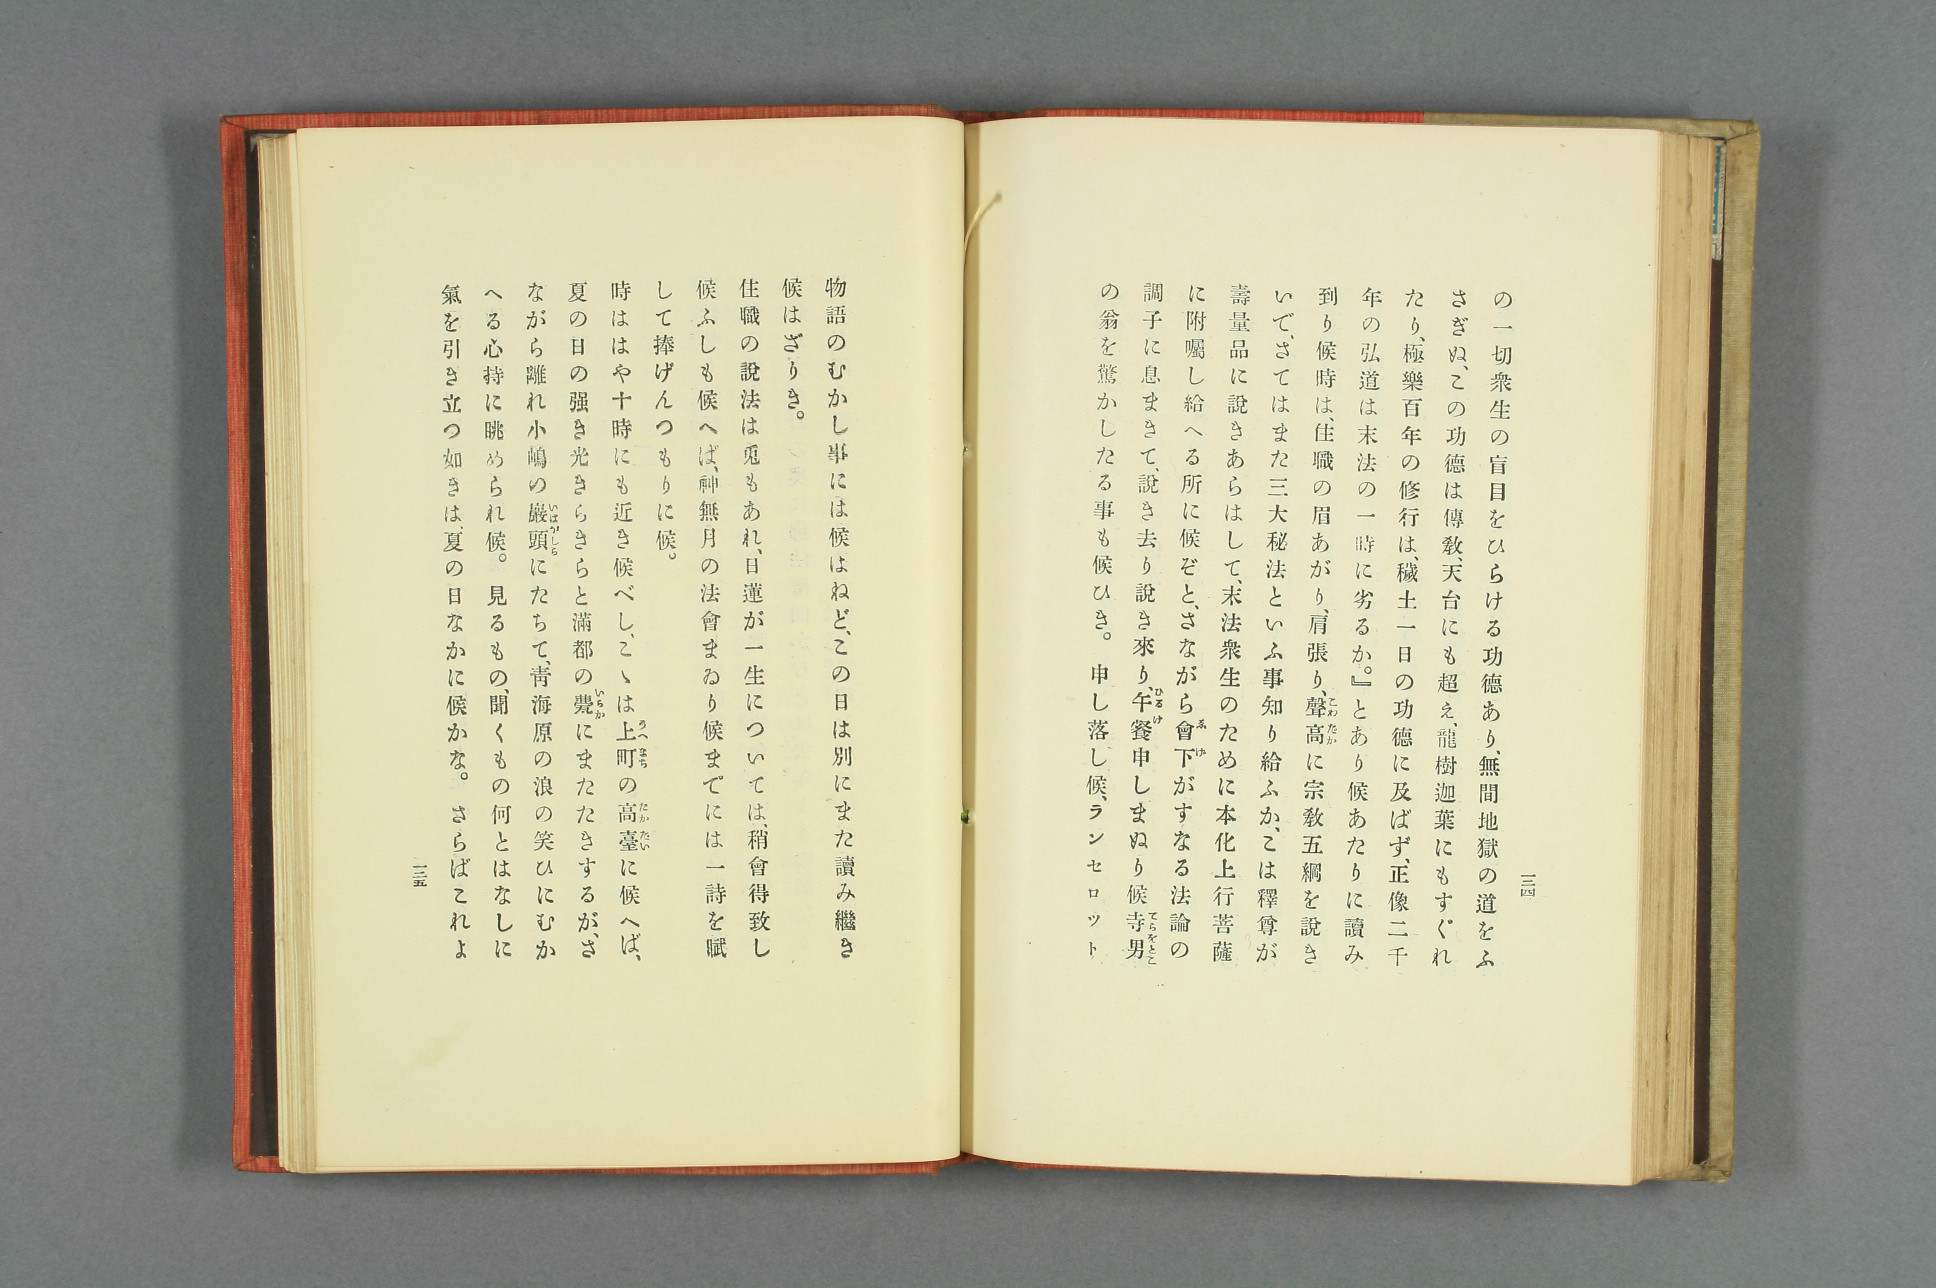 の一切衆生の盲目をひらける功德あり、無間地獄の道をふ
さぎぬ、この功德は傳敎、天台にも超え、龍樹迦葉にもすぐれ
たり、極樂百年の修行は、穢土一日の功德に及ばず、正像二千
年の弘道は末法の一時に劣るか。』とあり候あたりに讀み
到り候時は、住職の眉あがり、肩張り、聲高に宗敎五綱を說き
いで、さてはまた三大秘法といふ事知り給ふか、こは釋尊が
壽量品に說きあらはして、末法衆生のために本化上行菩薩
に附囑し給へる所に候ぞと、さながら會下がすなる法論の
調子に息まきて、說き去り說き來り、午餐申しまぬり候寺男
の翁を驚かしたる事も候ひき。 申し落し候、ランセロット
一三四
物語のむかし事には候はねど、この日は別にまた讀み繼き
候はざりき。
住職の說法は兎もあれ、日蓮が一生については、稍會得致し
候ふしも候へば、神無月の法會まゐり候までには一詩を賦
して捧げんつもりに候。
時ははや十時にも近き候べし、こゝは上町の高臺に候へば、
夏の日の强き光きらきらと滿都の甍にまたたきするが、さ
ながら離れ小嶋の巖頭にたちて、靑海原の浪の笑ひにむか
へる心持に眺められ候。 見るもの、聞くもの何とはなしに
氣を引き立つ如きは、夏の日なかに候かな。 さらばこれよ
一三五